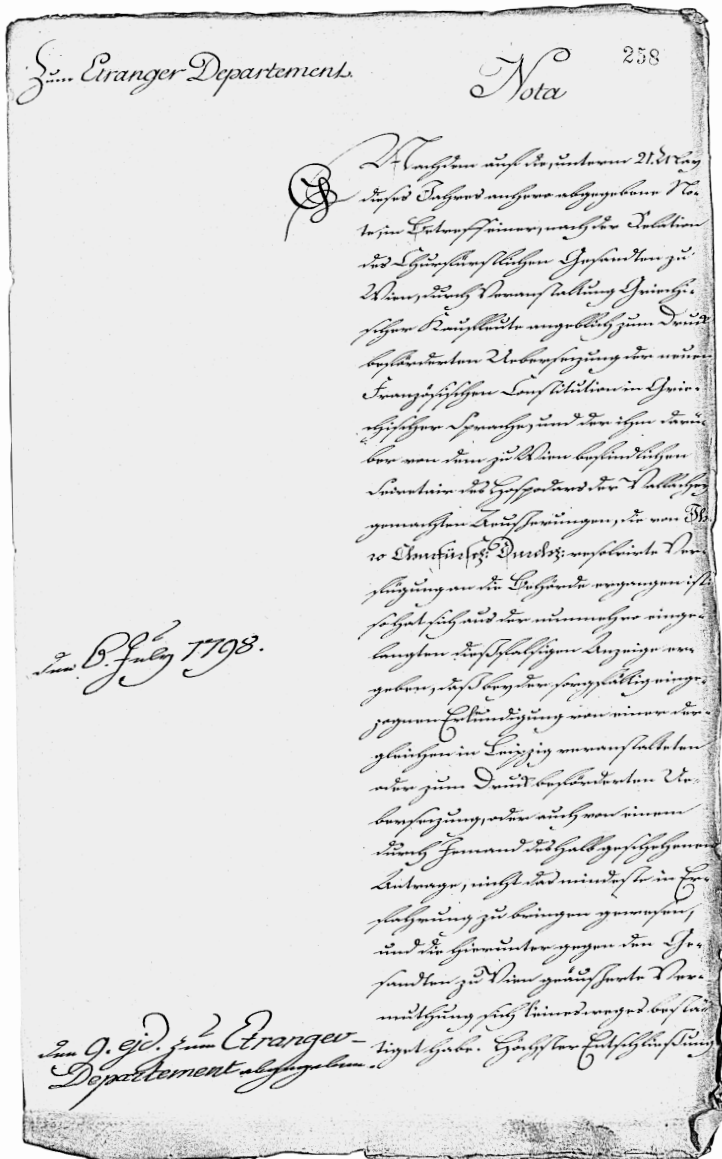 258
Zum Etranger Departement.
Nota
Nachdem auf die, unterm 21. May
dieses Jahres anhero abgegebene No-
te, in Betreff einer, nach der Relation
des Churfürstlichen Gesandten zu
Wien, durch Veranstaltung Griechi-
scher Kaufleute angeblich zum Druck
beförderten Uebersetzung der neuen
Französischen Constitution in Grie-
chischer Sprache, und der ihm darü-
ber von dem zu Wien befindlichen
Secretair des Hospodars der Vallachey
gemachten Aeußerungen, die von
Churfürstl: Durchl: resolvirte Ver-
fügung an die Behörde ergangen ist;
so hat sich aus der nunmehro einge-
langten dießfalsigen Anzeige er-
geben, daß bey der sorgfältig einge-
zognen Erkundigung von einer der-
gleichen in Leipzig veranstalteten
oder zum Druck beförderten Ue-
bersetzung, oder auch von einem
durch Jemand deshalb geschehenen
Antrage, nicht das mindeste in Er-
fahrung zu bringen gewesen,
und die hierunter gegen den Ge-
sandten zu Wien geäußerte Ver-
muthung sich keinesweges bestä-
tiget habe. Höchster Entschließung
den 6. July 1798.
den 9. ejd. zum Etranger-
Departement abgegeben.